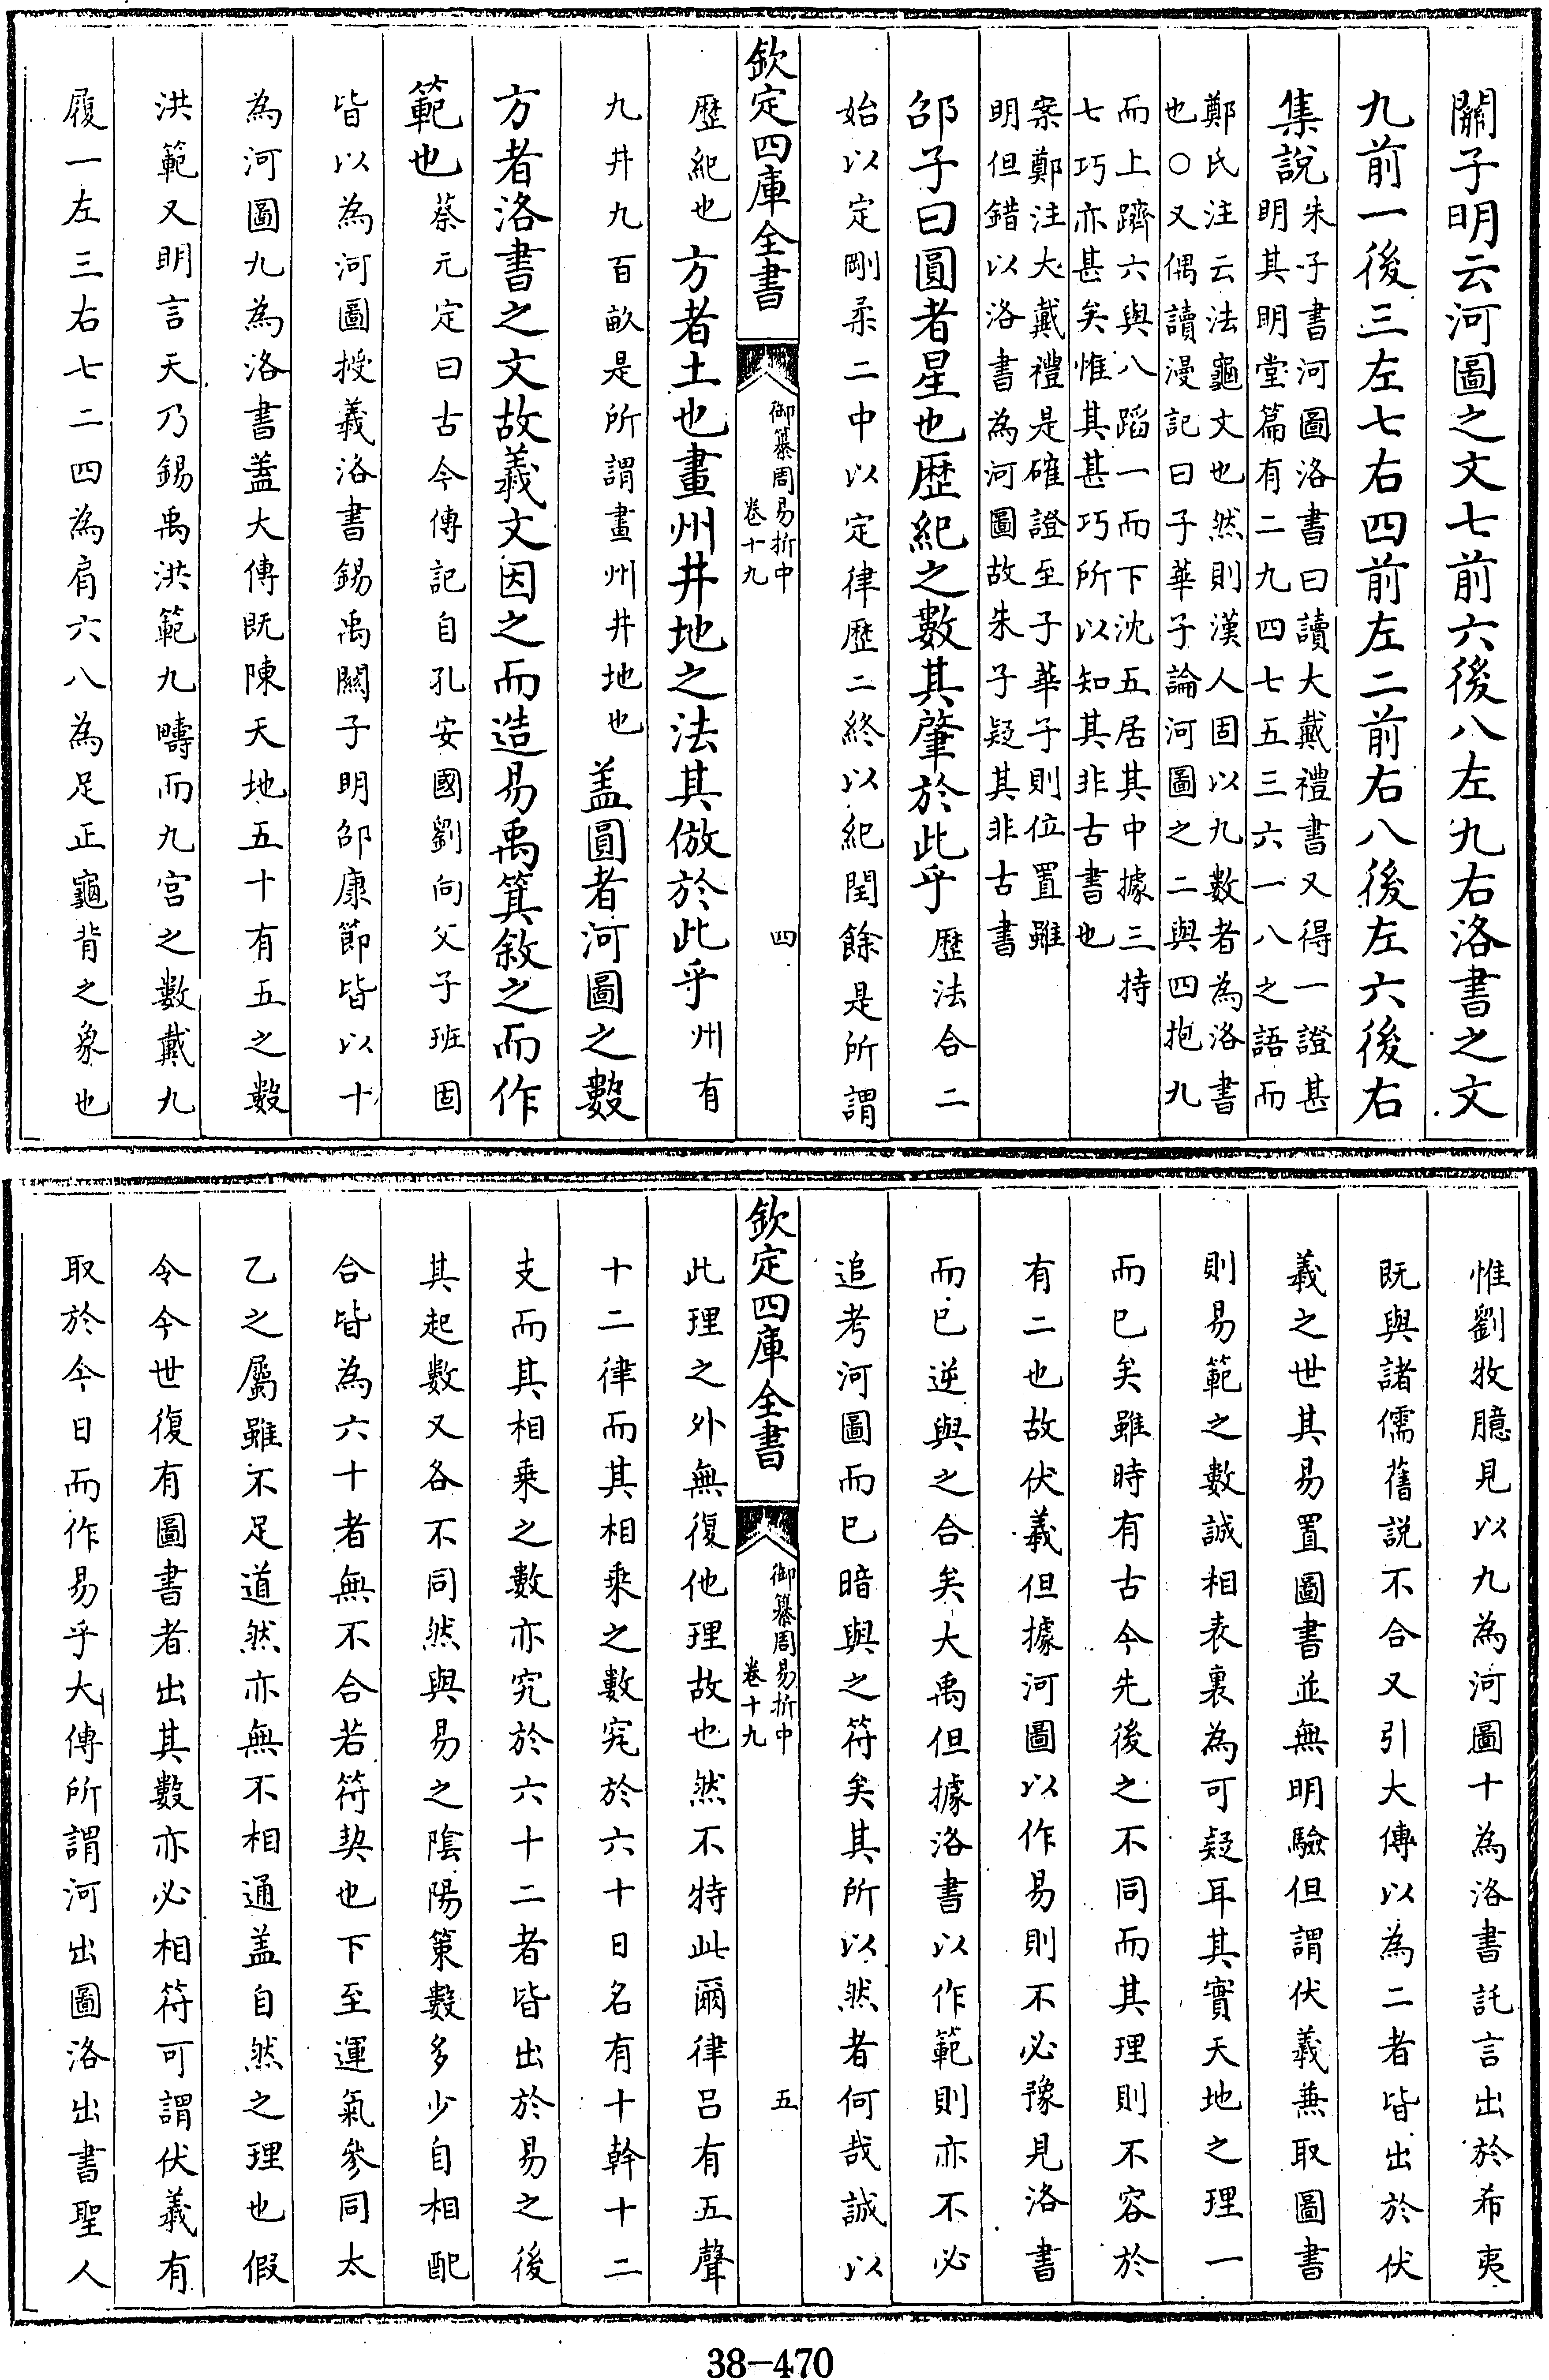 關子明云河圖之文七前六後八左九右洛書之文
九前一後三左七右四前左二前右八後左六後右
集説朱子書河圖洛書曰讀大戴禮書又得一證甚
明其明堂篇有二九四七五三六一八之語而
鄭氏注云法龜文也然則漢人固以九數者為洛書
也○又偶讀漫記曰子華子論河圖之二與四抱九
而上躋六與八蹈一而下沈五居其中據三持
七巧亦甚矣惟其甚巧所以知其非古書也
案鄭注大戴禮是確證至子華子則位置雖
明但錯以洛書為河圖故朱子疑其非古書
邵子曰圓者星也歴紀之數其肇於此乎歴法合二
始以定剛柔二中以定律歴二終以紀閏餘是所謂
欽定四庫全書
御纂周易折中
卷十九
四
歴紀也方者土也畫州井地之法其倣於此乎州有
九井九百畝是所謂畫州井地也蓋圓者河圖之數
方者洛書之文故羲文因之而造易禹箕敘之而作
範也蔡元定曰古今傳記自孔安國劉向父子班固
皆以為河圖授羲洛書錫禹關子明邵康節皆以十
為河圖九為洛書蓋大傳既陳天地五十有五之數
洪範又明言天乃錫禹洪範九疇而九宮之數戴九
履一左三右七二四為肩六八為足正龜背之象也
惟劉牧臆見以九為河圖十為洛書託言出於希夷
既與諸儒舊説不合又引大傳以為二者皆出於伏
羲之世其易置圖書並無明驗但謂伏羲兼取圖書
則易範之數誠相表裏為可疑耳其實天地之理一
而已矣雖時有古今先後之不同而其理則不容於
有二也故伏羲但據河圖以作易則不必豫見洛書
而已逆與之合矣大禹但據洛書以作範則亦不必
追考河圖而已暗與之符矣其所以然者何哉誠以
欽定四庫全書
御纂周易折中
卷十九
五
此理之外無復他理故也然不特此爾律呂有五聲
十二律而其相乘之數究於六十日名有十幹十二
支而其相乘之數亦究於六十二者皆出於易之後
其起數又各不同然與易之陰陽策數多少自相配
合皆為六十者無不合若符契也下至運氣參同太
乙之屬雖不足道然亦無不相通蓋自然之理也假
令今世復有圖書者出其數亦必相符可謂伏羲有
取於今日而作易乎大傳所謂河出圖洛出書聖人
38-470